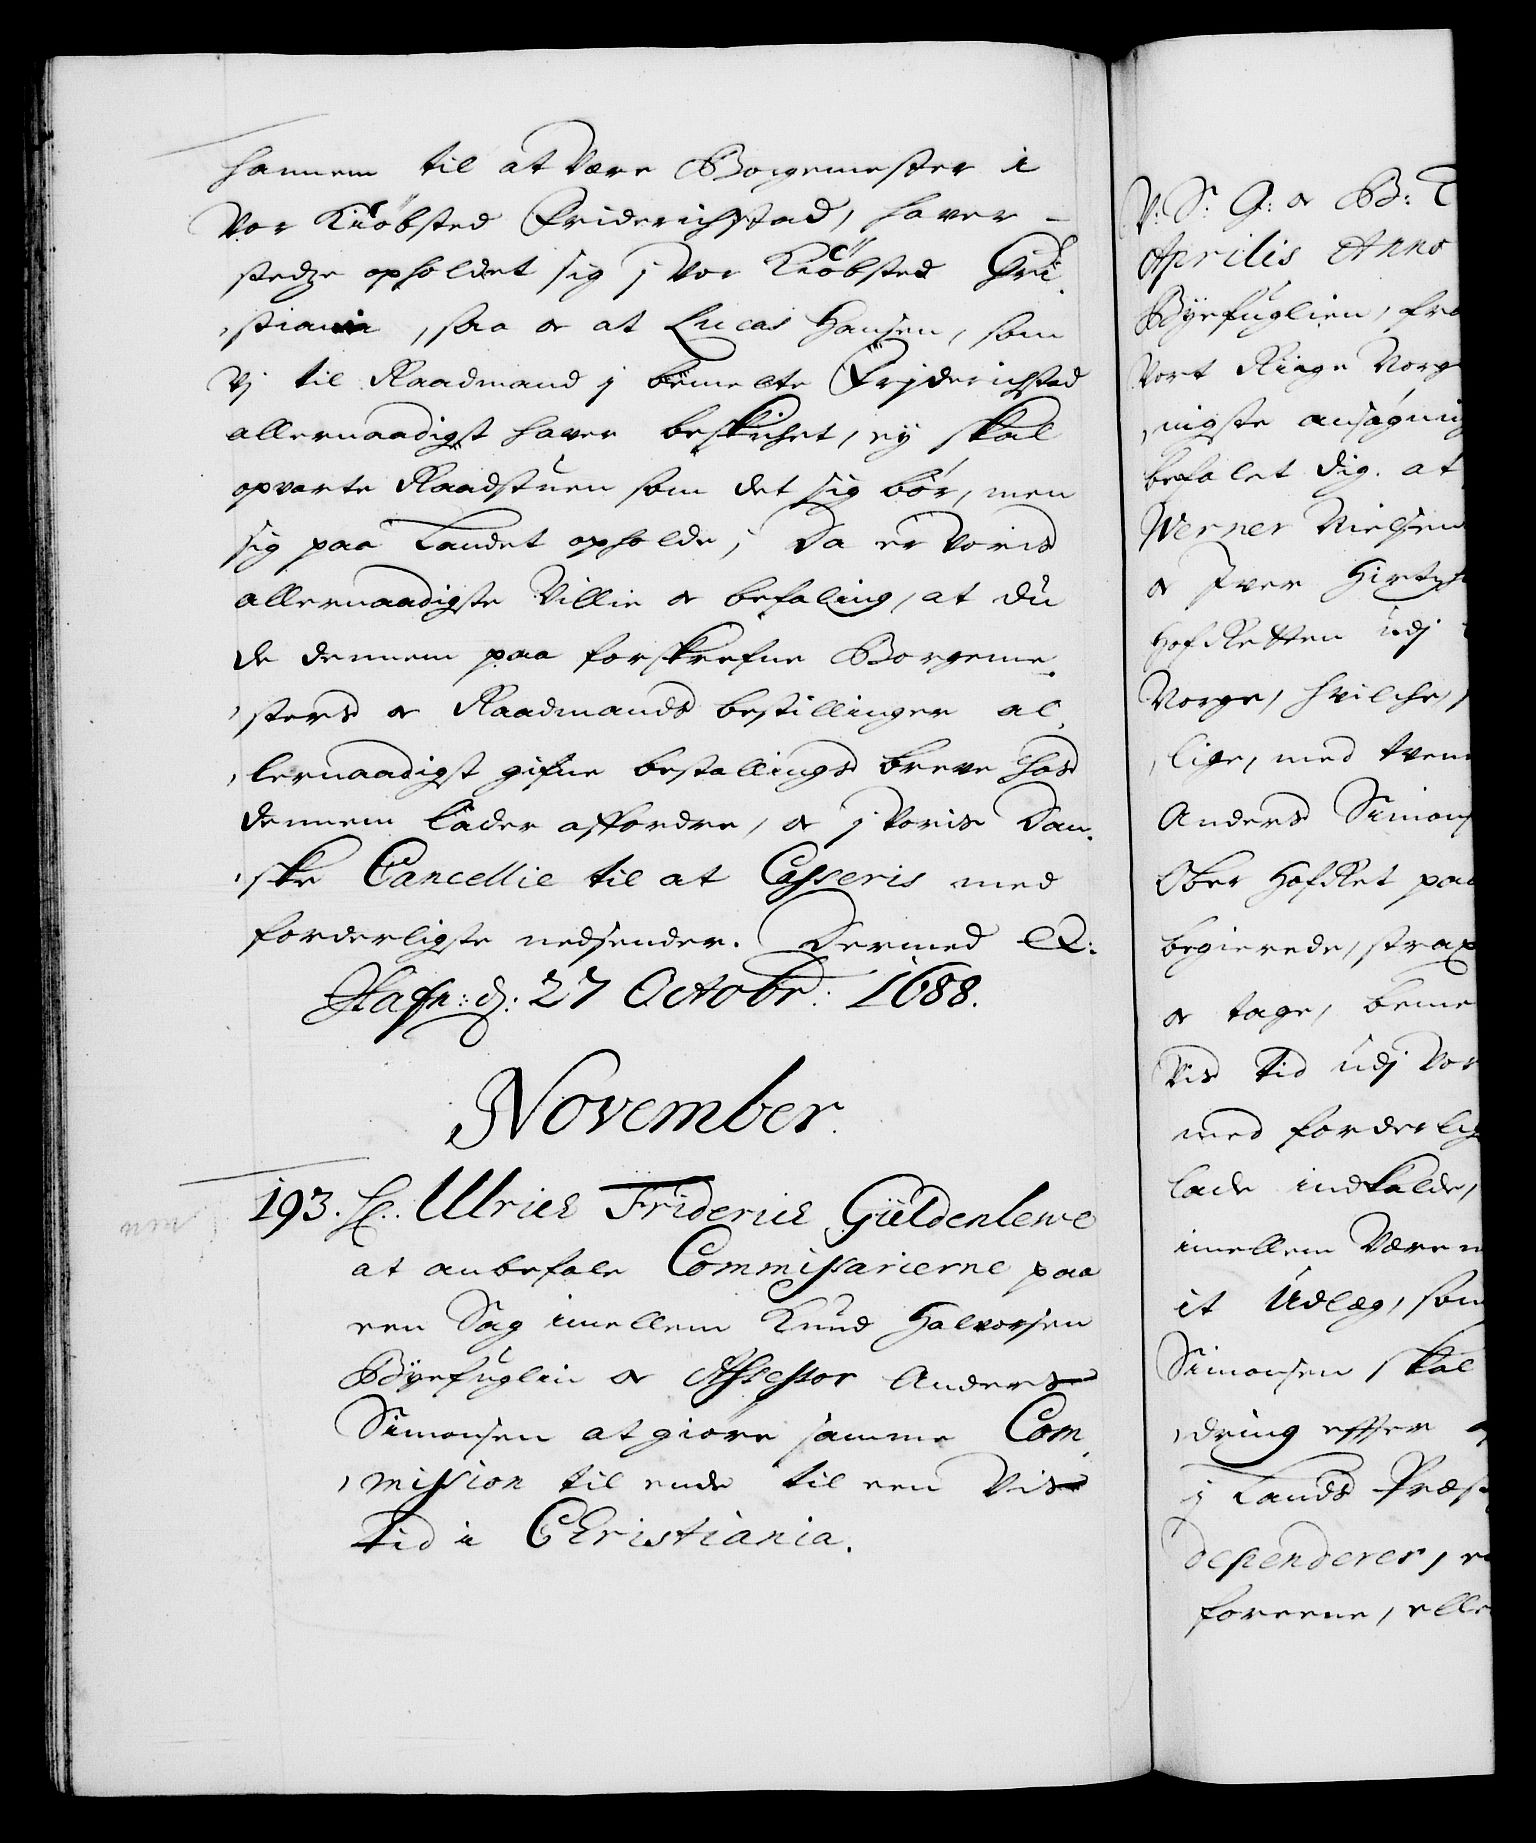 hannem til at være Borgemester i
Vor Kiøbsted Friderichstad, haver -
stedze opholdet sig j Vor Kiøbsted Chri,
,stiania, saa & at Lucas Hansen, som
Vj til Raadmand j bemelte Friderichstad
allernaadigst haver beskichet, ey skal
opvarte Raadstuen som det sig bør, men
sig paa Landet opholde; Da er Voris
allernaadigste Villie & befaling, at du
de dennem paa forskrefne Borgeme,
,sters & Raadmands bestillinger al,
,lernaadigst gifne bestallings breve hos
dennem lader affordre, & j Voris Dan,
,ske Cancellie til at Casseris med
forderligste nedsender. Dermed &:
Hafn: d: 27 Octobr: 1688.
November.
193. Hr. Ulrich Friderich Güldenlewe
at anbefale Commissarierne paa
een Sag imellem Knud Halvorsen
Byefuglin & Assessor Anders
Simonsen at giøre samme Com,
,mission til ende til een Vis
tid i Christiania.
V: S: G: & B: T
Aprilis Anno
Byefuglien, fra
Vort Riige Norg
,nigste ansøgning
befalet dig. at
Werner Nielsen
& Iver
HofRetten udj
Norge, hvilche,
,lige, med tven
Anders Simons
Ober HofRet paa
begierede, strax
& tage, beme
Vis tid udj Vor
med forderlig
lade indkalde,
imellem Være
it Udlæg, som
Simonsen skal
,dring effter
j Lands Præs
dependerer,
foreene, elle